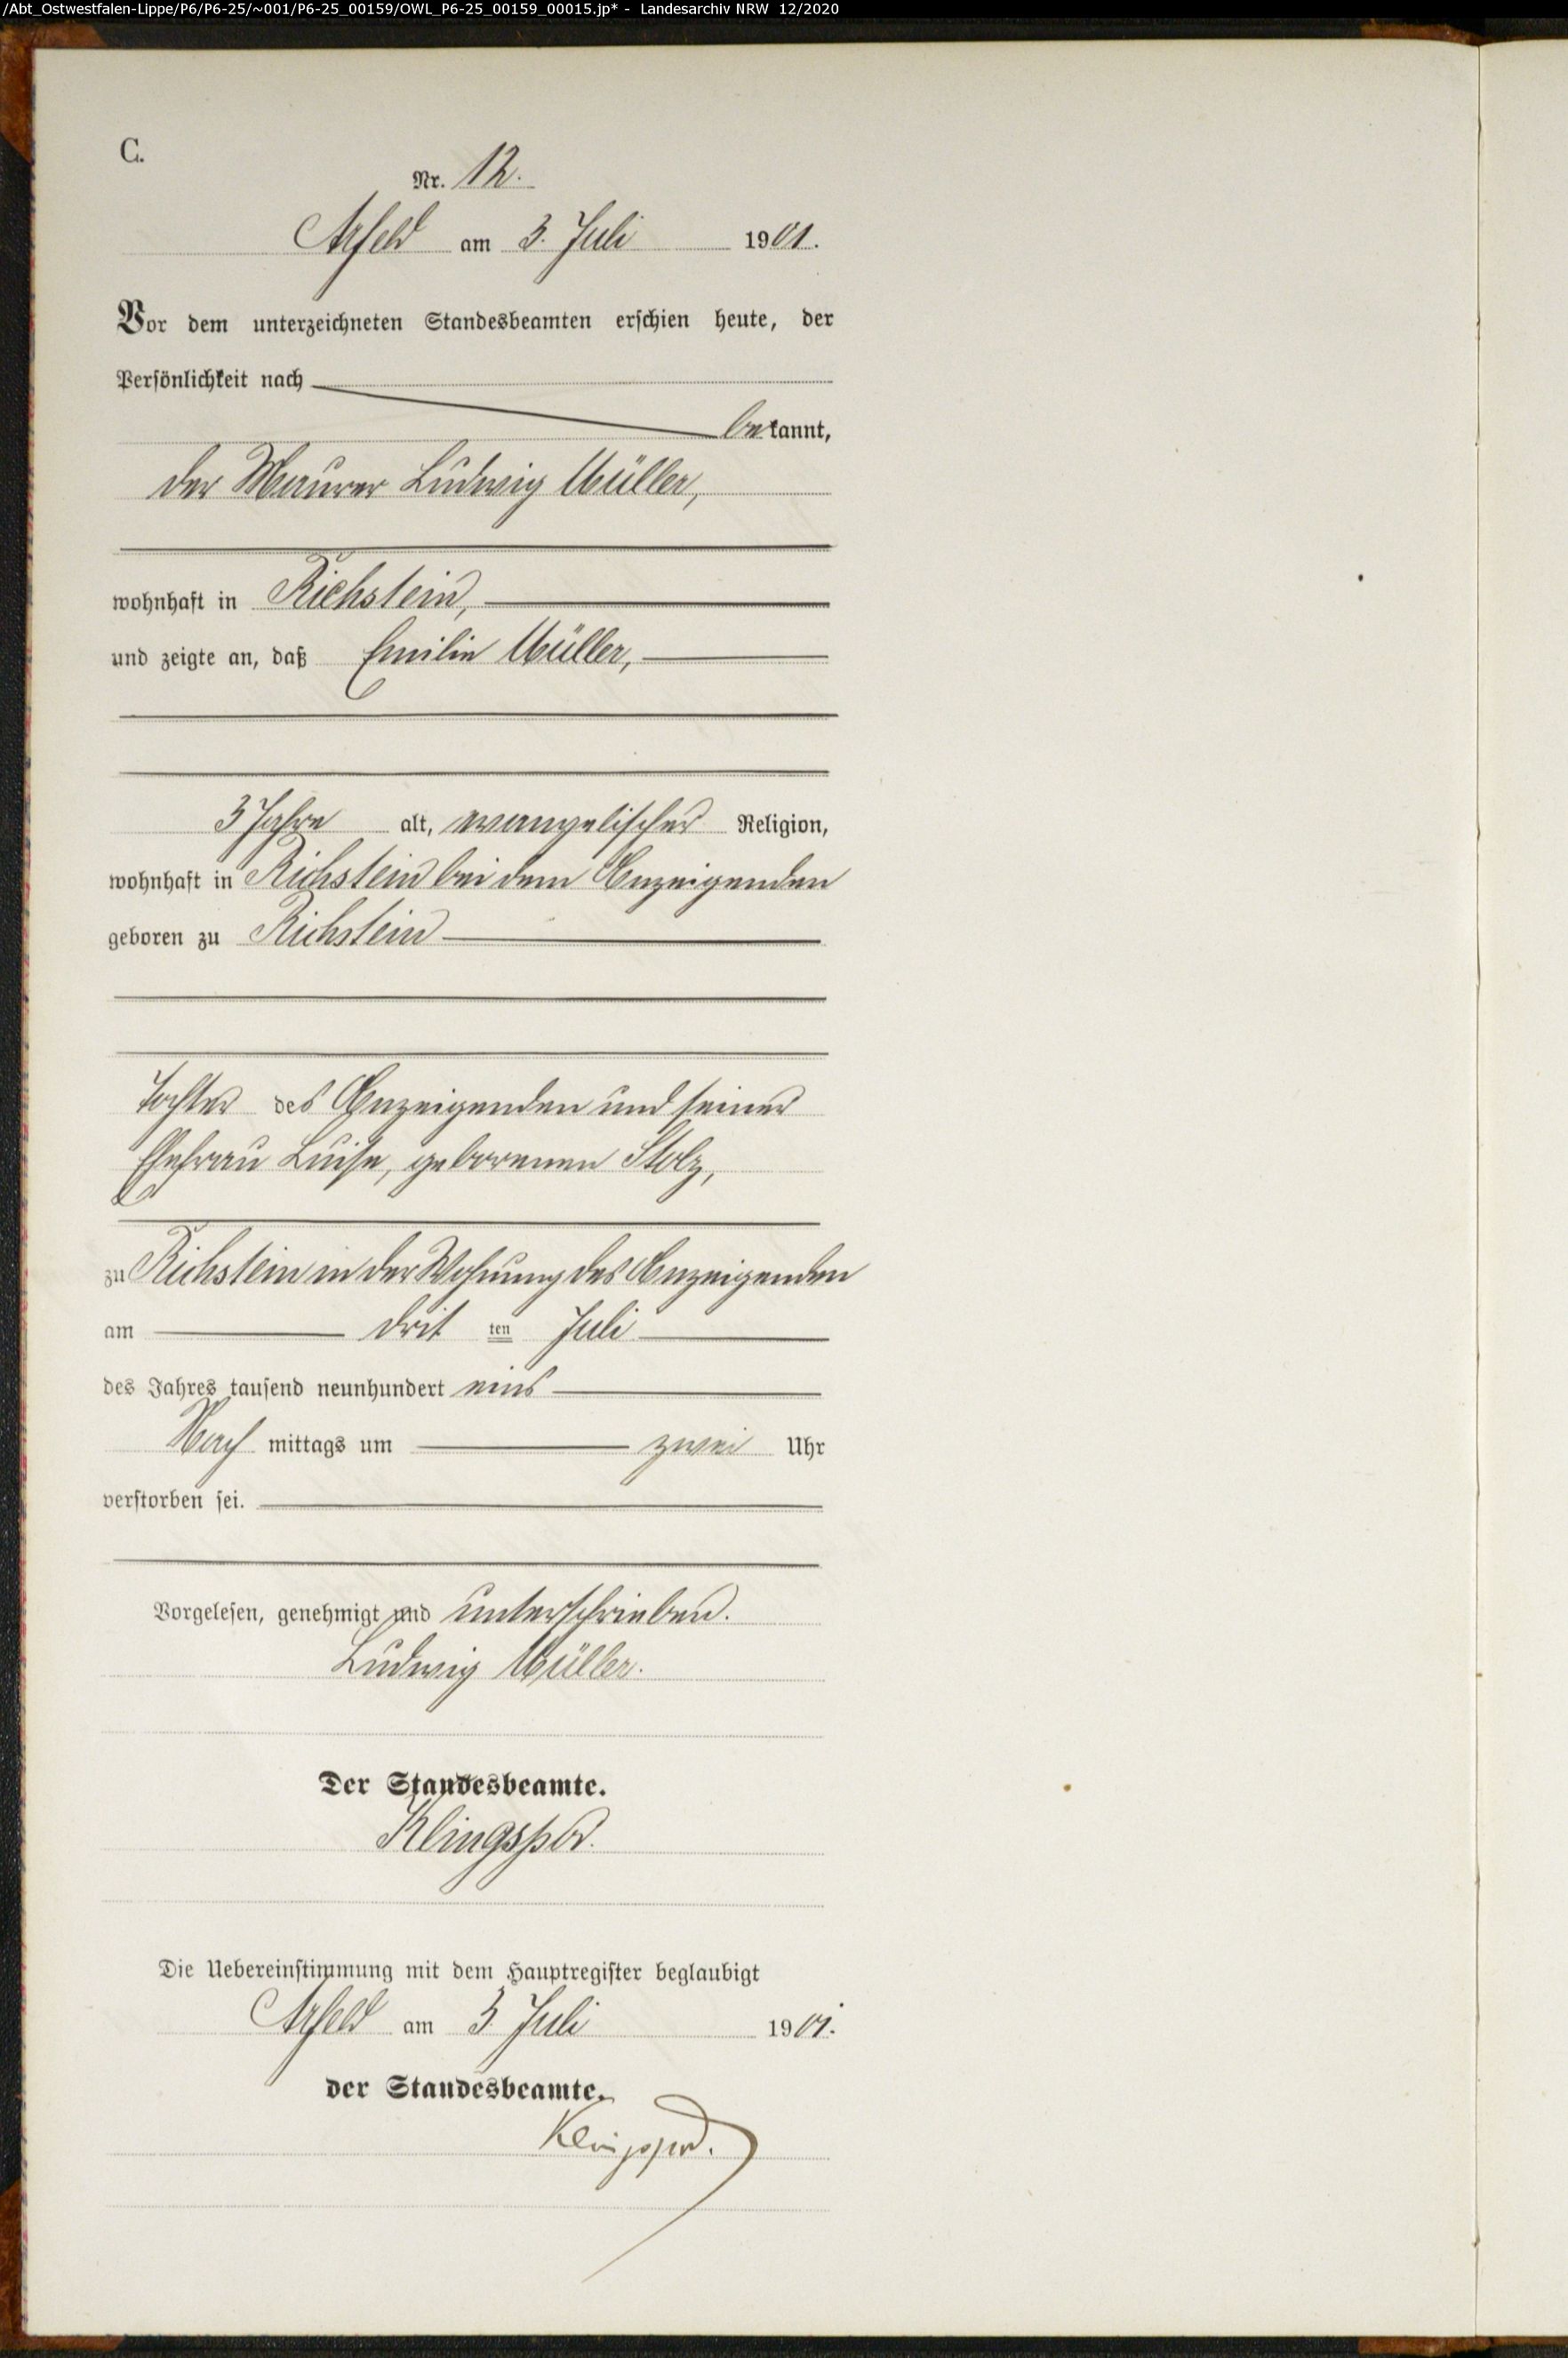 /Abt_Ostwestfalen-Lippe/P6/P6-25/~001/P6-25_00159/OWL_P6-25_00159_00015.jp* - Landesarchiv NRW 12/2020
C.
Nr. 12.
Arfeld am 3. Juli 1901.
Vor dem unterzeichneten Standesbeamten erschien heute, der
Persönlichkeit nach
bekannt,
der Maurer Ludwig Müller,
wohnhaft in Richstein,
und zeigte an, daß Emilie Müller,
3 Jahre alt, evangelischer Religion,
wohnhaft in Richstein bei dem Anzeigenden
geboren zu Richstein
Tochter des Anzeigenden und seiner
Ehefrau Luise, geborenen Stolz,
zu Richstein in der Wohnung des Anzeigenden
am dritten Juli
des Jahres tausend neunhundert eins
Nachmittags um zwei Uhr
verstorben sei.
Vorgelesen, genehmigt und unterschrieben.
Ludwig Müller.
Der Standesbeamte.
Klingspor.
Die Uebereinstimmung mit dem Hauptregister beglaubigt
Arfeld am 3. Juli 1901.
der Standesbeamte.
Klingspor.